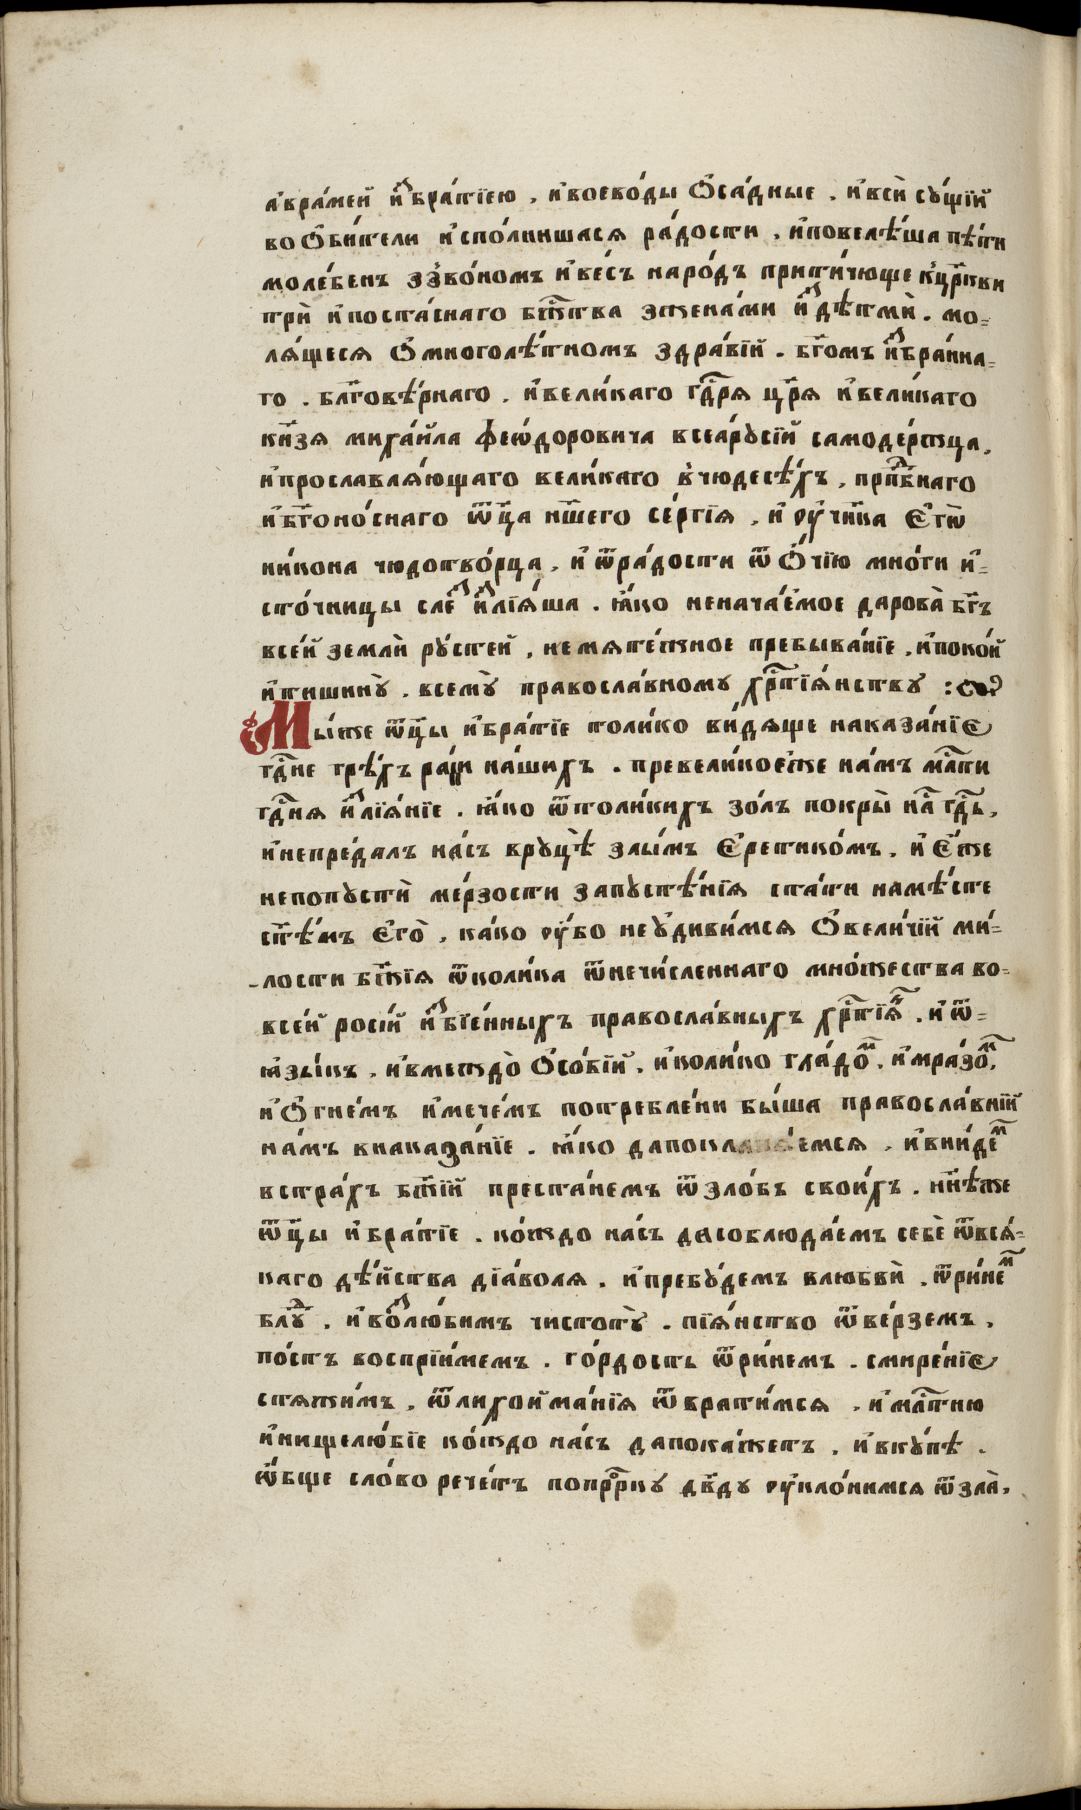 а҆вра́мей и҆з̾бра́тїею , и҆воево́ды Ѻ҆са́дные . и҆всѝ сꙋ́щїй
во Ѻ҆би́тели и҆спо́лнишася ра́дости . и҆повелѣ́ша пѣ́ти
моле́бенъ ззво́номъ и҆ве́съ наро́дъ прити́чюще кц҃ркви
трѝ и҆поста́снаго бж҃тва зжена́ми и҆здѣтмѝ . мо=
ля́щеся Ѻ҆многолѣ́тномъ здра́вїй . бг҃омъ и҆збра́нна=
го . блг҃овѣ́рнаго . и҆вели́каго гдⷭ҇ря цр҃я и҆вели́каго
кн҃зя миха́йла феѡ́доровича всеарꙋсі́й самоде́ржца ,
и҆прославля́ющаго вели́каго в̾чюдесѣ́хъ , прпⷣбнаго
и҆бг҃оно́снаго ѿц҃а нш҃его се́ргїя , и҆ оу҆чн҃ка Є҆гѡ̀
ни́кона чюдотво́рца , и҆ ѿра́дости ѿ Ѻ҆́чїю мно́ги и҆=
сто́чницы слеⷥ и҆злїя́ша . ꙗ҆́ко неначае́мое дарова̀ бг҃ъ
все́й землѝ рꙋ́стей , немяте́жное пребыва́нїе , и҆поко́й
и҆тишинꙋ̀ . всемꙋ̀ правосла́вному хрⷭ҇тїя́нству :
Мы́же ѿц҃ы и҆бра́тїе толи́ко ви́дяще наказа́нїе
гдⷭ҇не грѣ́хъ ра́ди на́шихъ . превели́коеже на́мъ млⷭ҇ти
гдⷭ҇ня и҆злїя́нїе . ꙗ҆́ко ѿтоли́кихъ зо́лъ покры̀ наⷭ҇ гдⷭ҇ь ,
и҆непреда́лъ на́съ врꙋцѣ̀ злы́мъ Є҆ретико́мъ . и҆ Є҆́же
непопꙋстѝ ме́рзости запꙋстѣ́нїя ста́ти намѣ́сте
ст҃ѣ́мъ Є҆го̀ , ка́ко оу҆́бо неꙋ҆диви́мся Ѻ҆вели́чїй ми́=
лости бж҃їя ѿколи́ка ѿнечи́сленнаго мно́жества во=
все́й росі́й и҆з̾бїе́нныхъ правосла́вныхъ хрⷭ҇тїя́ⷩ . и҆ ѿ=
ꙗ҆зы́къ , и҆вмеждꙋ̀ Ѻ҆со́бїй , и҆коли́ко гла́доⷨ , и҆мра́зоⷨ,
и҆ Ѻ҆гне́мъ и҆мече́мъ потребле́ни бы́ша правосла́внїй
на́мъ внаказа́нїе . ꙗ҆́ко дапока́емся , и҆вни́деⷨ
встра́хъ бж҃їй преста́немъ ѿзло́бъ свои́хъ . нн҃ѣже
ѿц҃ы и҆бра́тїе . ко́ждо на́съ дасоблюда́емъ себѐ ѿвся́=
каго дѣ́йства дїа́воля , и҆пребꙋ́демъ влюбвѝ . ѿри́неⷨ
блꙋⷣ , и҆воⷥлю́бимъ чистотꙋ̀ . пїя́нство ѿве́рземъ ,
по́стъ воспрїи́мемъ . го́рдость ѿри́немъ . смире́нїе
стяжи́мъ , ѿлихои҆ма́нїя ѿврати́мся , и҆млⷭ҇тню
и҆нищелю́бїе ко́ждо на́съ дапока́жетъ , и҆вкꙋ́пѣ .
ѡ҆́бще сло́во рече́тъ попр҃рку дв҃ду оу҆кло́нимся ѿзла̀,